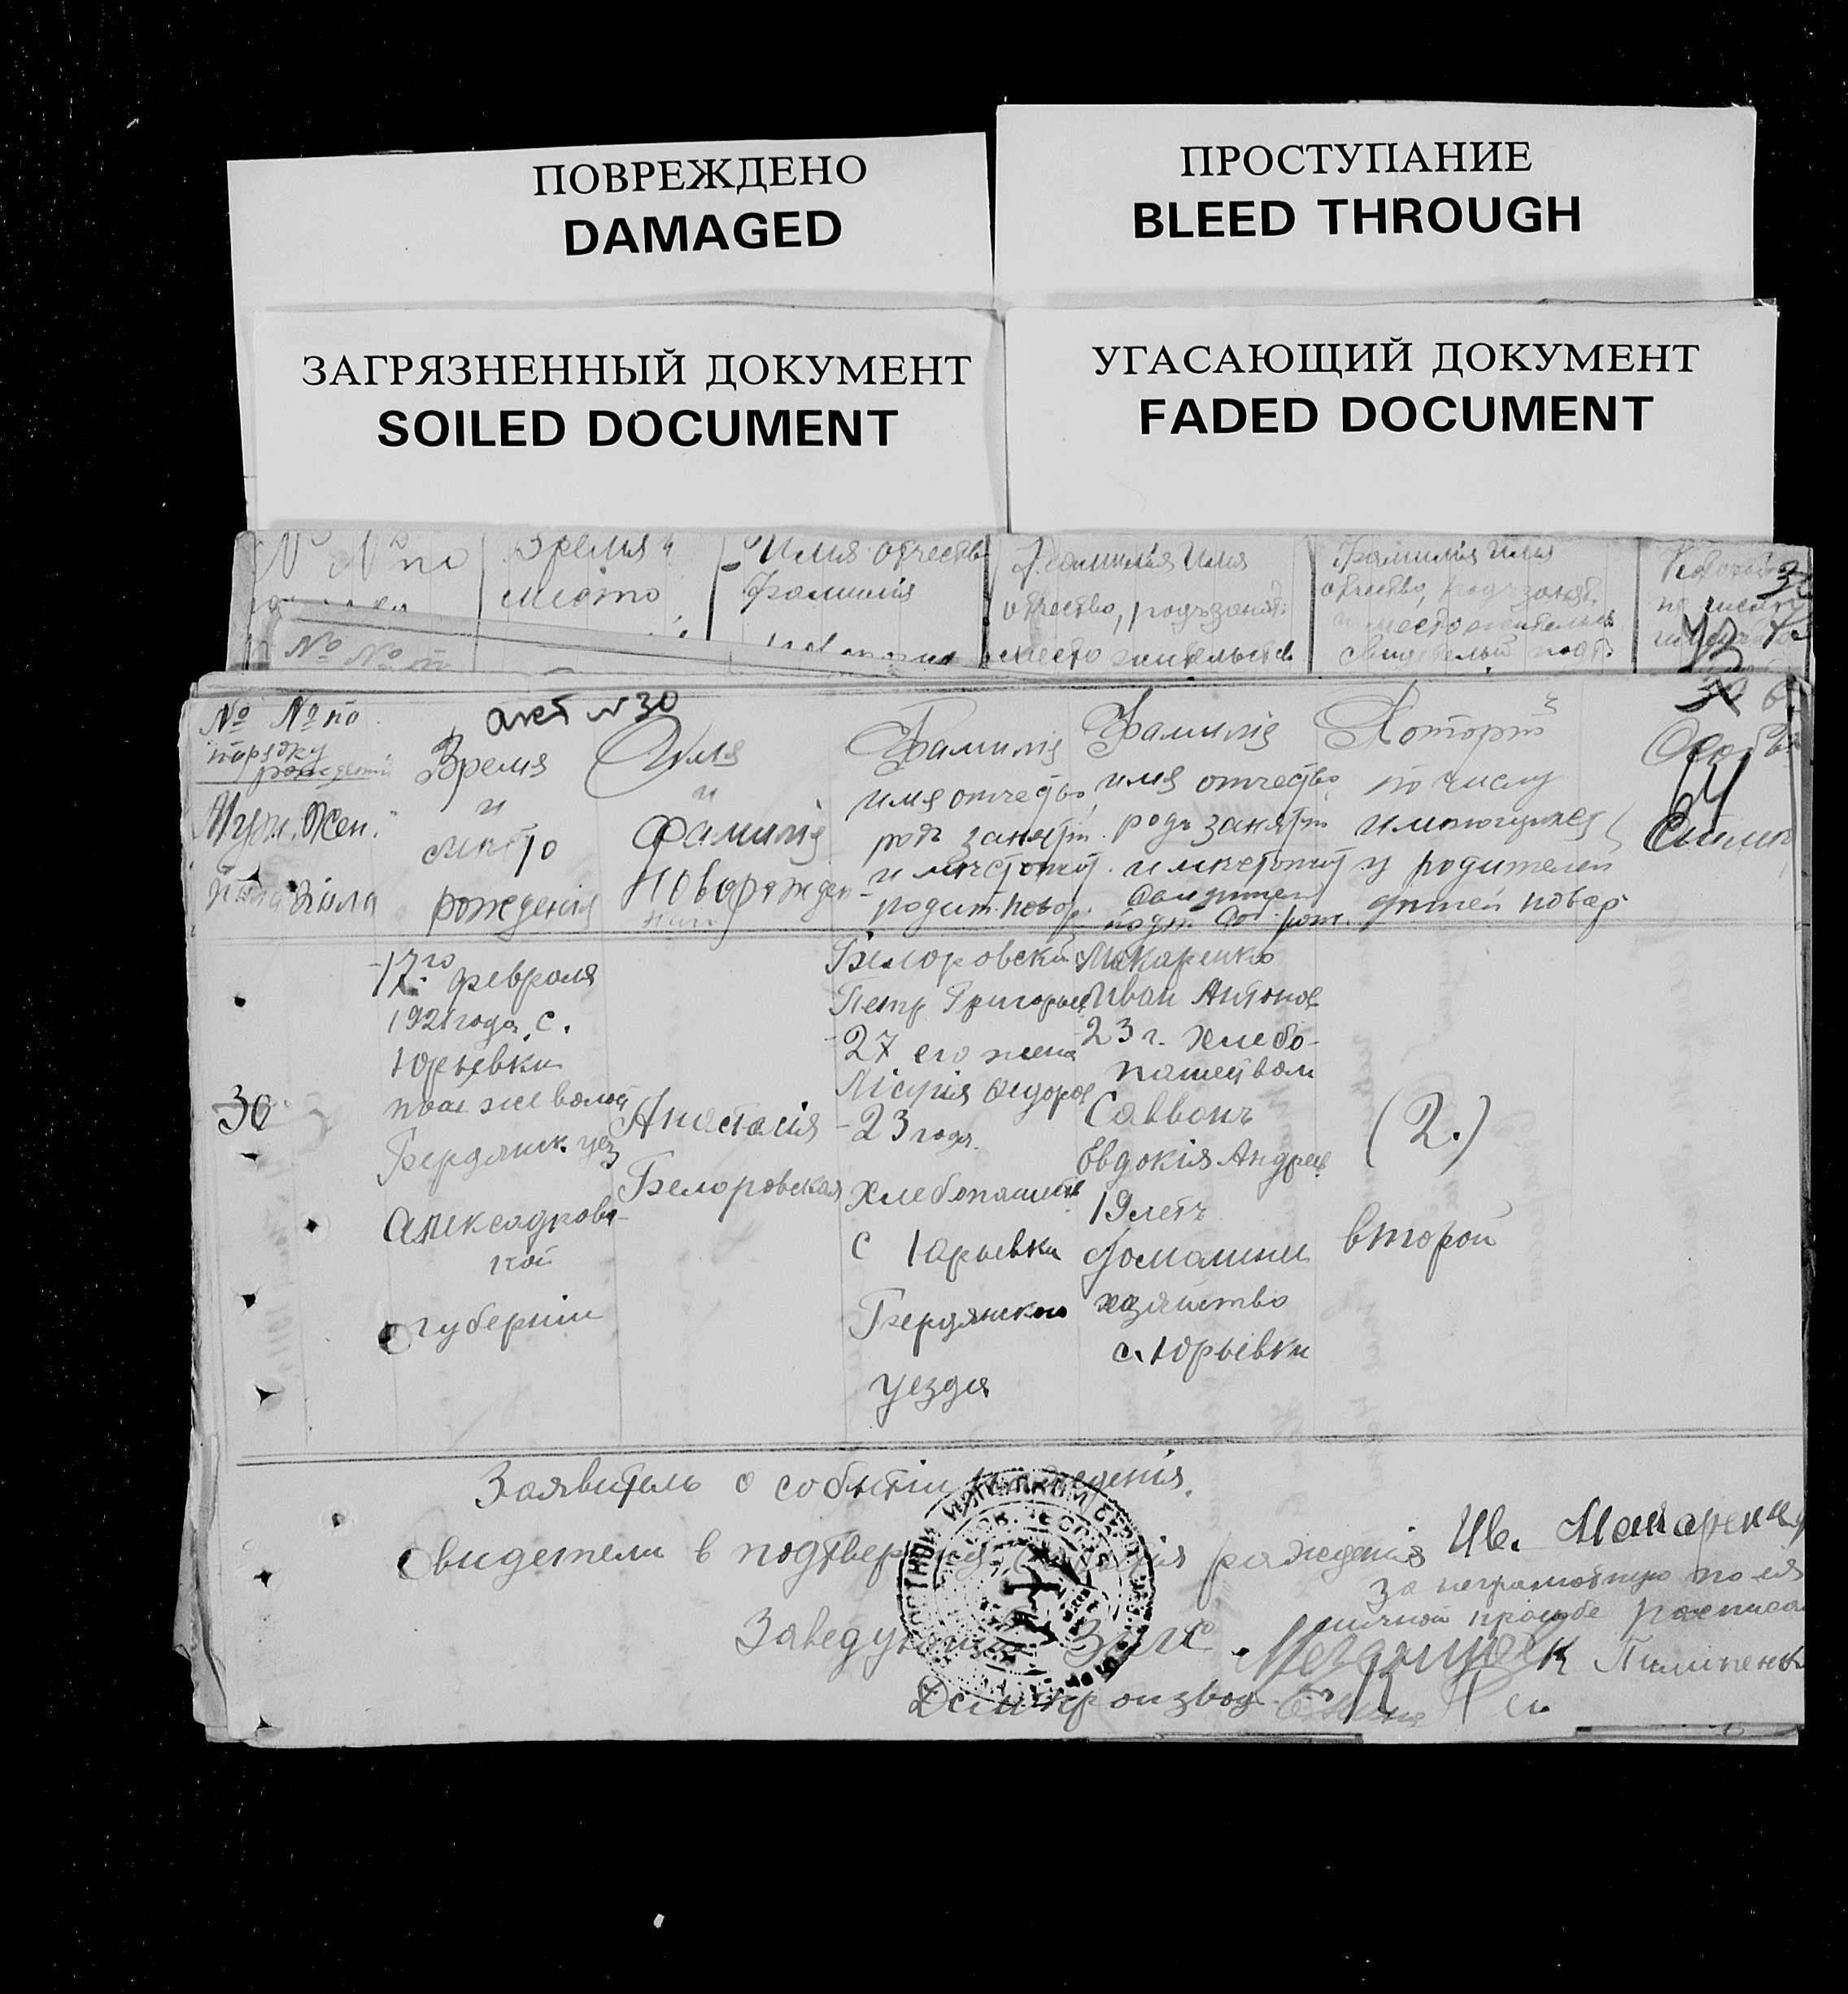 ПОВРЕЖДЕНО
DAMAGED
ПРОСТУПАНИЕ
BLEED THROUGH
ЗАГРЯЗНЕННЫЙ ДОКУМЕНТ
SOILED DOCUMENT
УГАСАЮЩИЙ ДОКУМЕНТ
FADED DOCUMENT
№ №по
Время и
место
Имя отчеств
Фамилія
Фамилія Имя
отчество, родъ занят.
место жительств
Фамилія Имя
отчество, родъ занят.
место жительств
свидетелей подт.
№ № п
акт №30
№ №по
порядку
рождений
Муж. Жен.
пола
Время
и
место
рождения
Имя
и
фамилія
Новорожден
ного
Фамилія
имя отчество
родъ занятій
и местожит.
родит. новор.
Фамилія
имя отчество
родъ занятій
и местожит
свидетел
подт. соб. рож.
Который
по числу
имеющихся
у родителей
детей новор.
30
17го февраля
1921 года с.
Юрьевки
той же волос
Бердянск. уез
Александровс-
кой
губерніи
Анастасія
Белоровская
Белоровскій
Петр Григорьев
27 его жена
Марія Федоров
23 года.
хлебопашеств
с Юрьевки
Бердянскаго
уезда
Макаренко
Иван Антонов
23 г. хлебо-
пашеством
Саввонъ
Евдокія Андрее
19 летъ
домашнее
хозяйство
с. Юрьевки
(2.)
второй
Заявитель о событіи рождения.
Свидетели в подтверждения события рождения Ив. Макаренко
за неграмотную по ея
личной просьбе расписа
Заведующий Загс
Пилипенко
Делопроизвод.